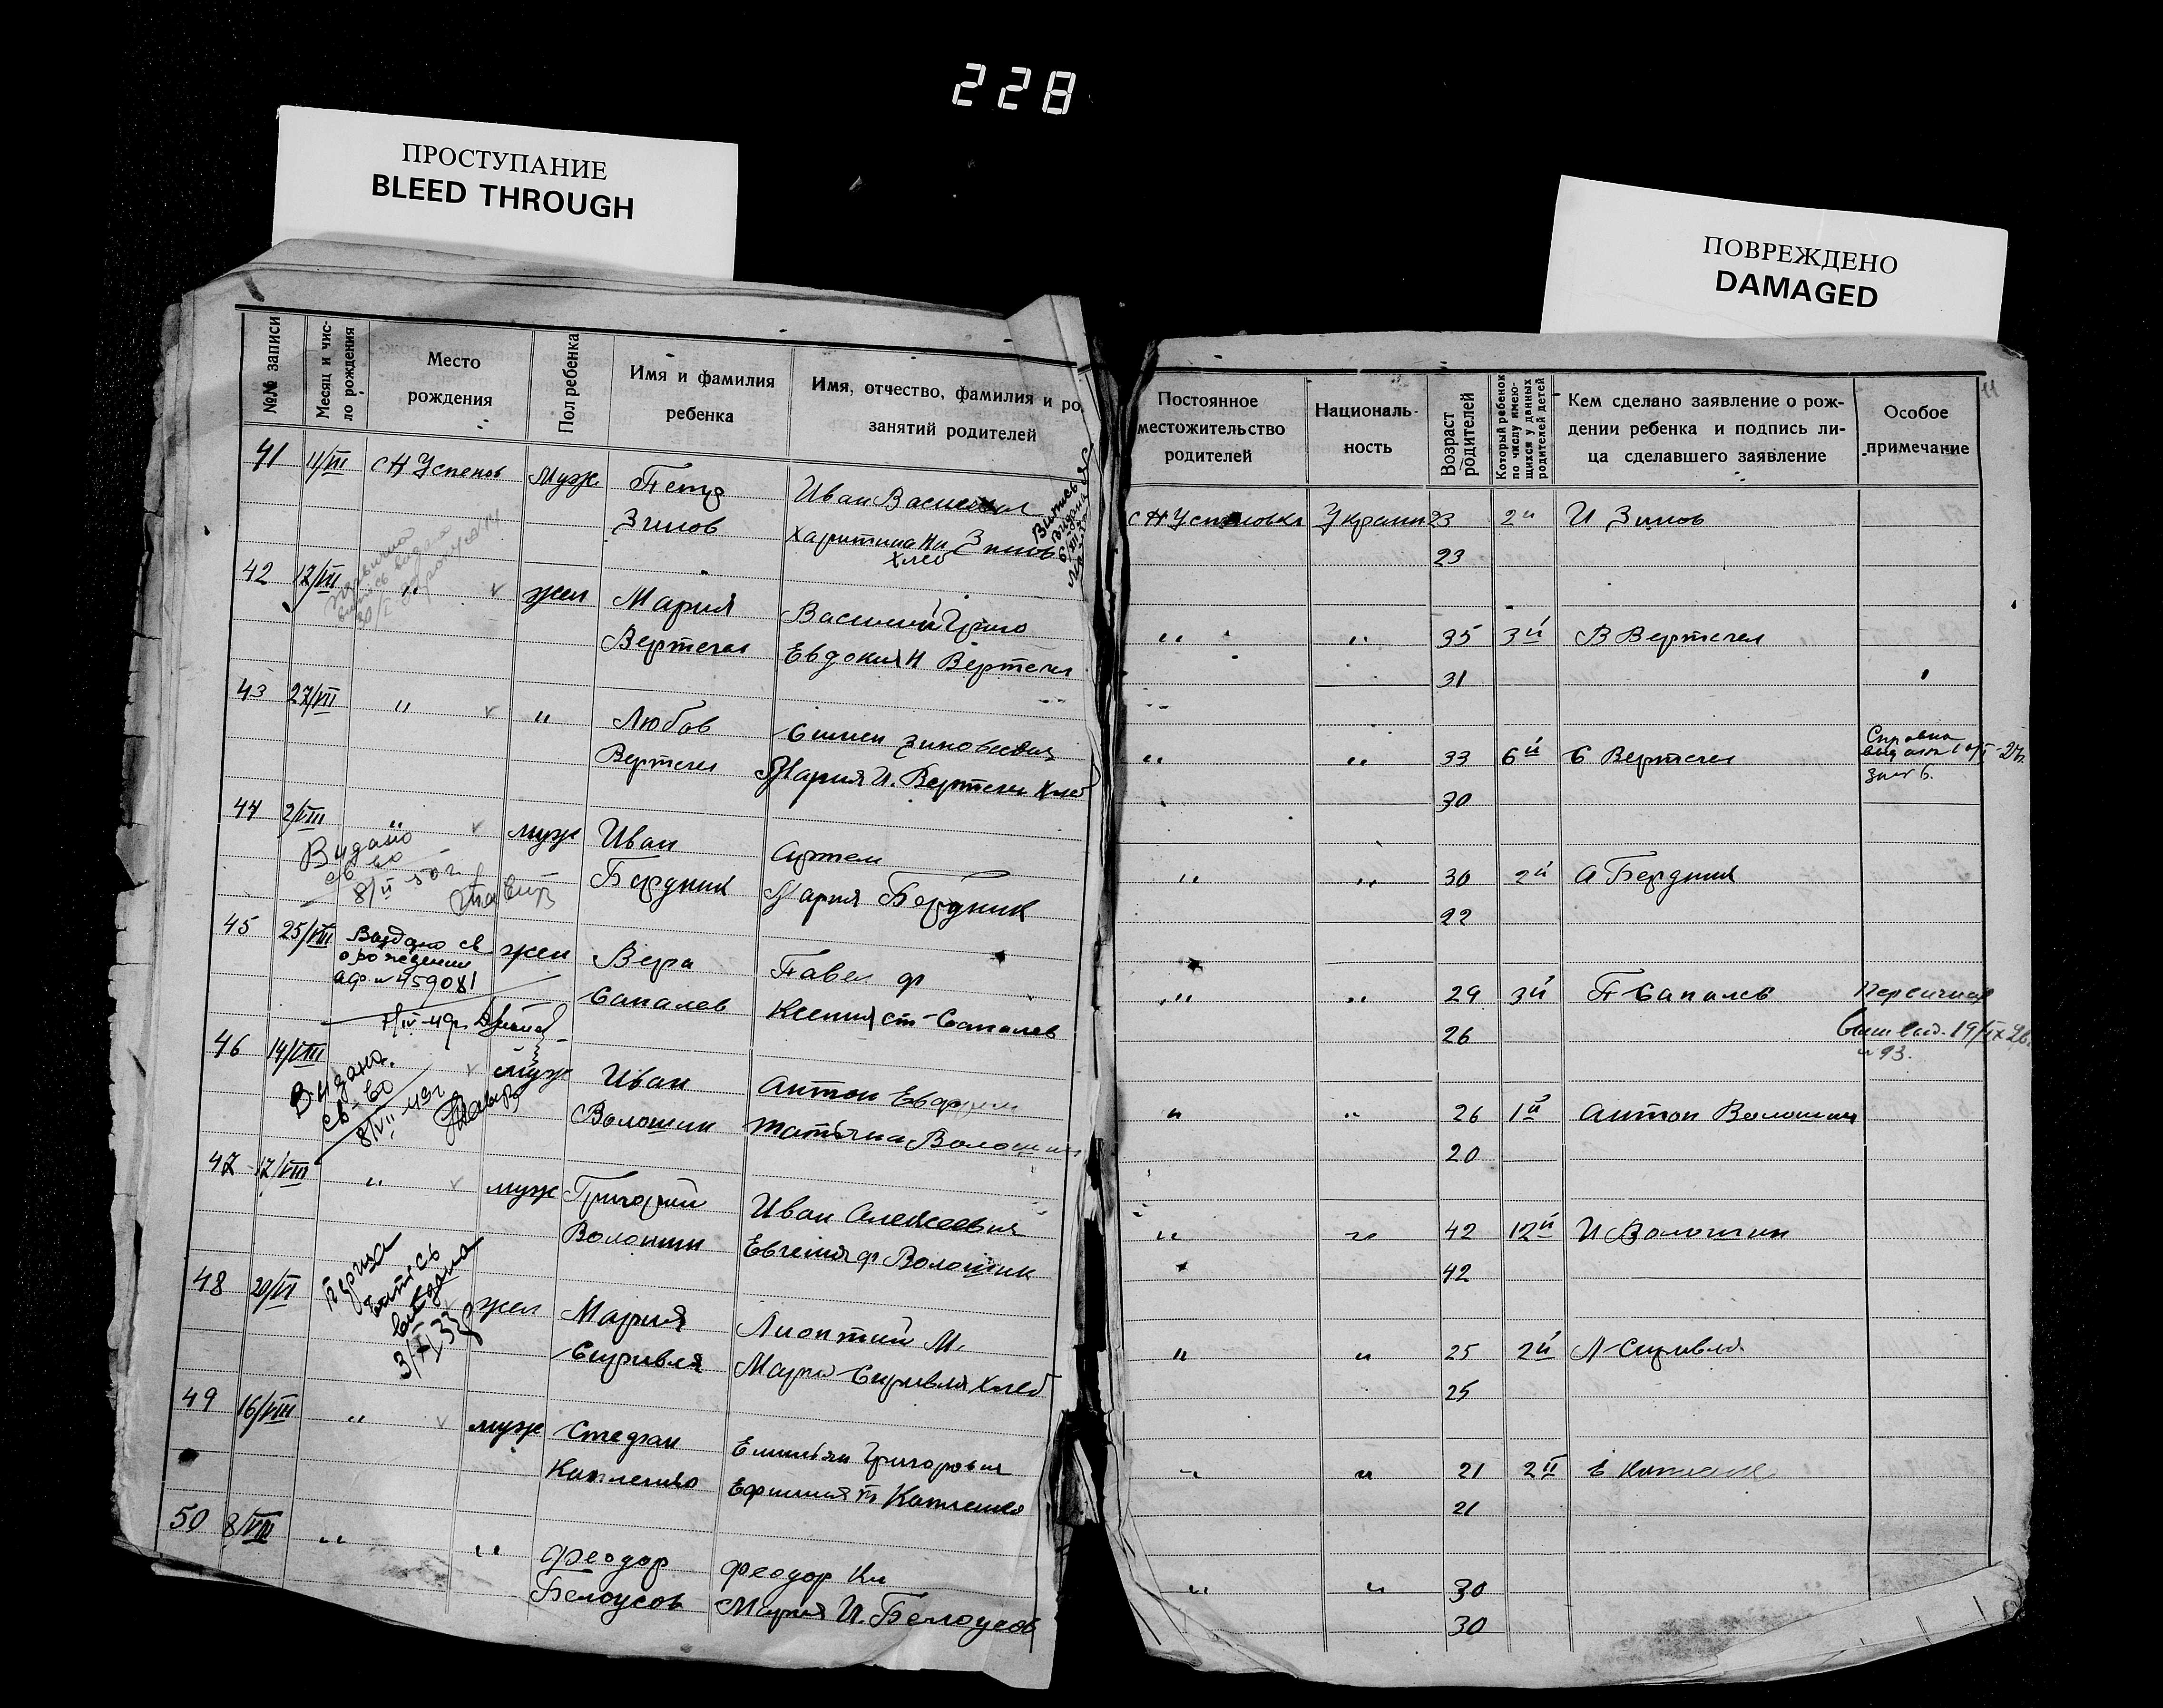 228
ПРОСТУПАНИЕ
BLEED THROUGH
ПОВРЕЖДЕНО
DAMAGED
№№ записи
Месяц и чис-
ло рождения
Место
рождения
Пол ребенка
Имя и фамилия
ребенка
Имя, отчество, фамилия и ро
занятий родителей
Постоянное
местожительство
родителей
Националь-
ность
Возраст
родителей
Который ребенок
по числу имею-
щихся у данных
родителей детей
Кем сделано заявление о рож-
дении ребенка и подпись ли-
ца сделавшего заявление
Особое
примечание
11
41 11/VII с Н Успенов муж Петр Иван
Зинов Харитина Зинов
хлеб
Выпись
выдана
с Н Успеновка Украин 23 2й И Зинов
23
42 17/VII " жен Мария Василий Григо
Вертегел Евдокия Н Вертегел
" " 35 3й В Вертегел
31
43 27/VII " " Любов Симен Зиновеевич
Вертегел Мария И. Вертегел хлеб
" " 33 6й С Вертегел
30
Справка
44 2/VIII " муж Иван Артем
Бердник Мария Бердник
Видано
св во
8/II 50 г.
" " 30 2й А Бердник
22
45 25/VIII жен Вера Павел ф
Сапалев Ксения ст Сапалев
Выдано св
о рождении
№ 459081
" " 29 3й П Сапалев
26
Первичная
19/IX 26.
№ 93.
46 14/VIII муж Иван Антон
Волошин Татьяна Волошин
Видана.
св-во
8/VII 49г
" " 26 1й Антон Волошин
20
47 17/VIII " муж Григорий Иван Алексеевич
Волошин Евгения ф Волошин
" " 42 12й И Волошин
42
48 20/VI жен Мария Лионтий М.
Сиривля Сиривля хлеб
выпись
выдана
" " 25 2й Л Сиривля
25
49 16/VIII " муж Стефан Емильян Григорович
Капленко Ефимия Капленко
" " 21 2й Е
21
50 8/VIII " " Феодор Феодор Кл
Белоусов Мария И. Белоусов
" " 30
30